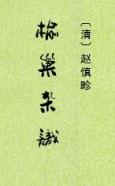 〔清〕赵慎畛
榆巢杂識